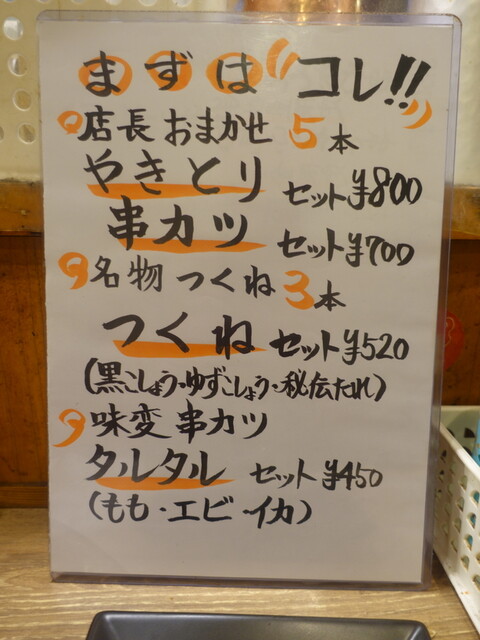 まずは コレ!!
店長 おまかせ 5本
やきとり セット ¥800
串カツ セット ¥700
名物 つくね 3本
つくね セット ¥520
(黒こしょう・ゆずこしょう・秘伝たれ)
味変 串カツ
タルタル セット ¥450
(もも・エビ・イカ)